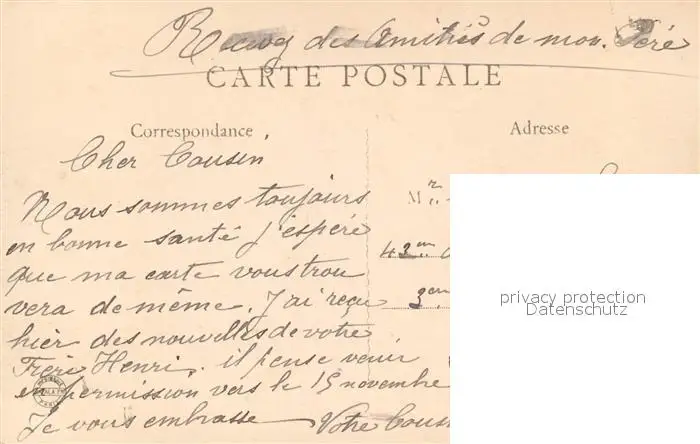 Recevez des Amitiés de mon Péré
CARTE POSTALE
Correspondance
Adresse
Cher Cousin
Nous sommes toujours
en bonne santé j'espéré
que ma carte vous trou
vera de même. J'ai reçu
hier des nouvelles de votre
Frére Henri. il pense venir
en permission vers le 15 novembre
Je vous embrasse Votre Cous
M
42em
3em
privacy protection
Datenschutz